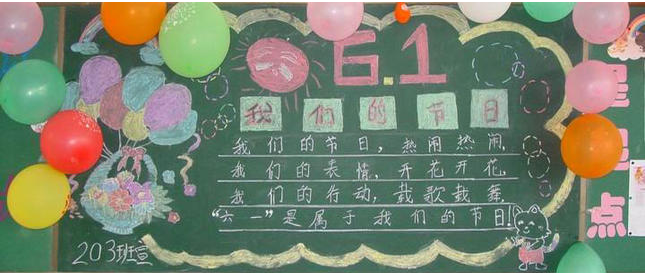 6.1
我们的节日
我们的节日，热闹热闹，
我们的表情，开花开花，
我们的行动，载歌载舞，
“六一”是属于我们的节日！
203班宣
点